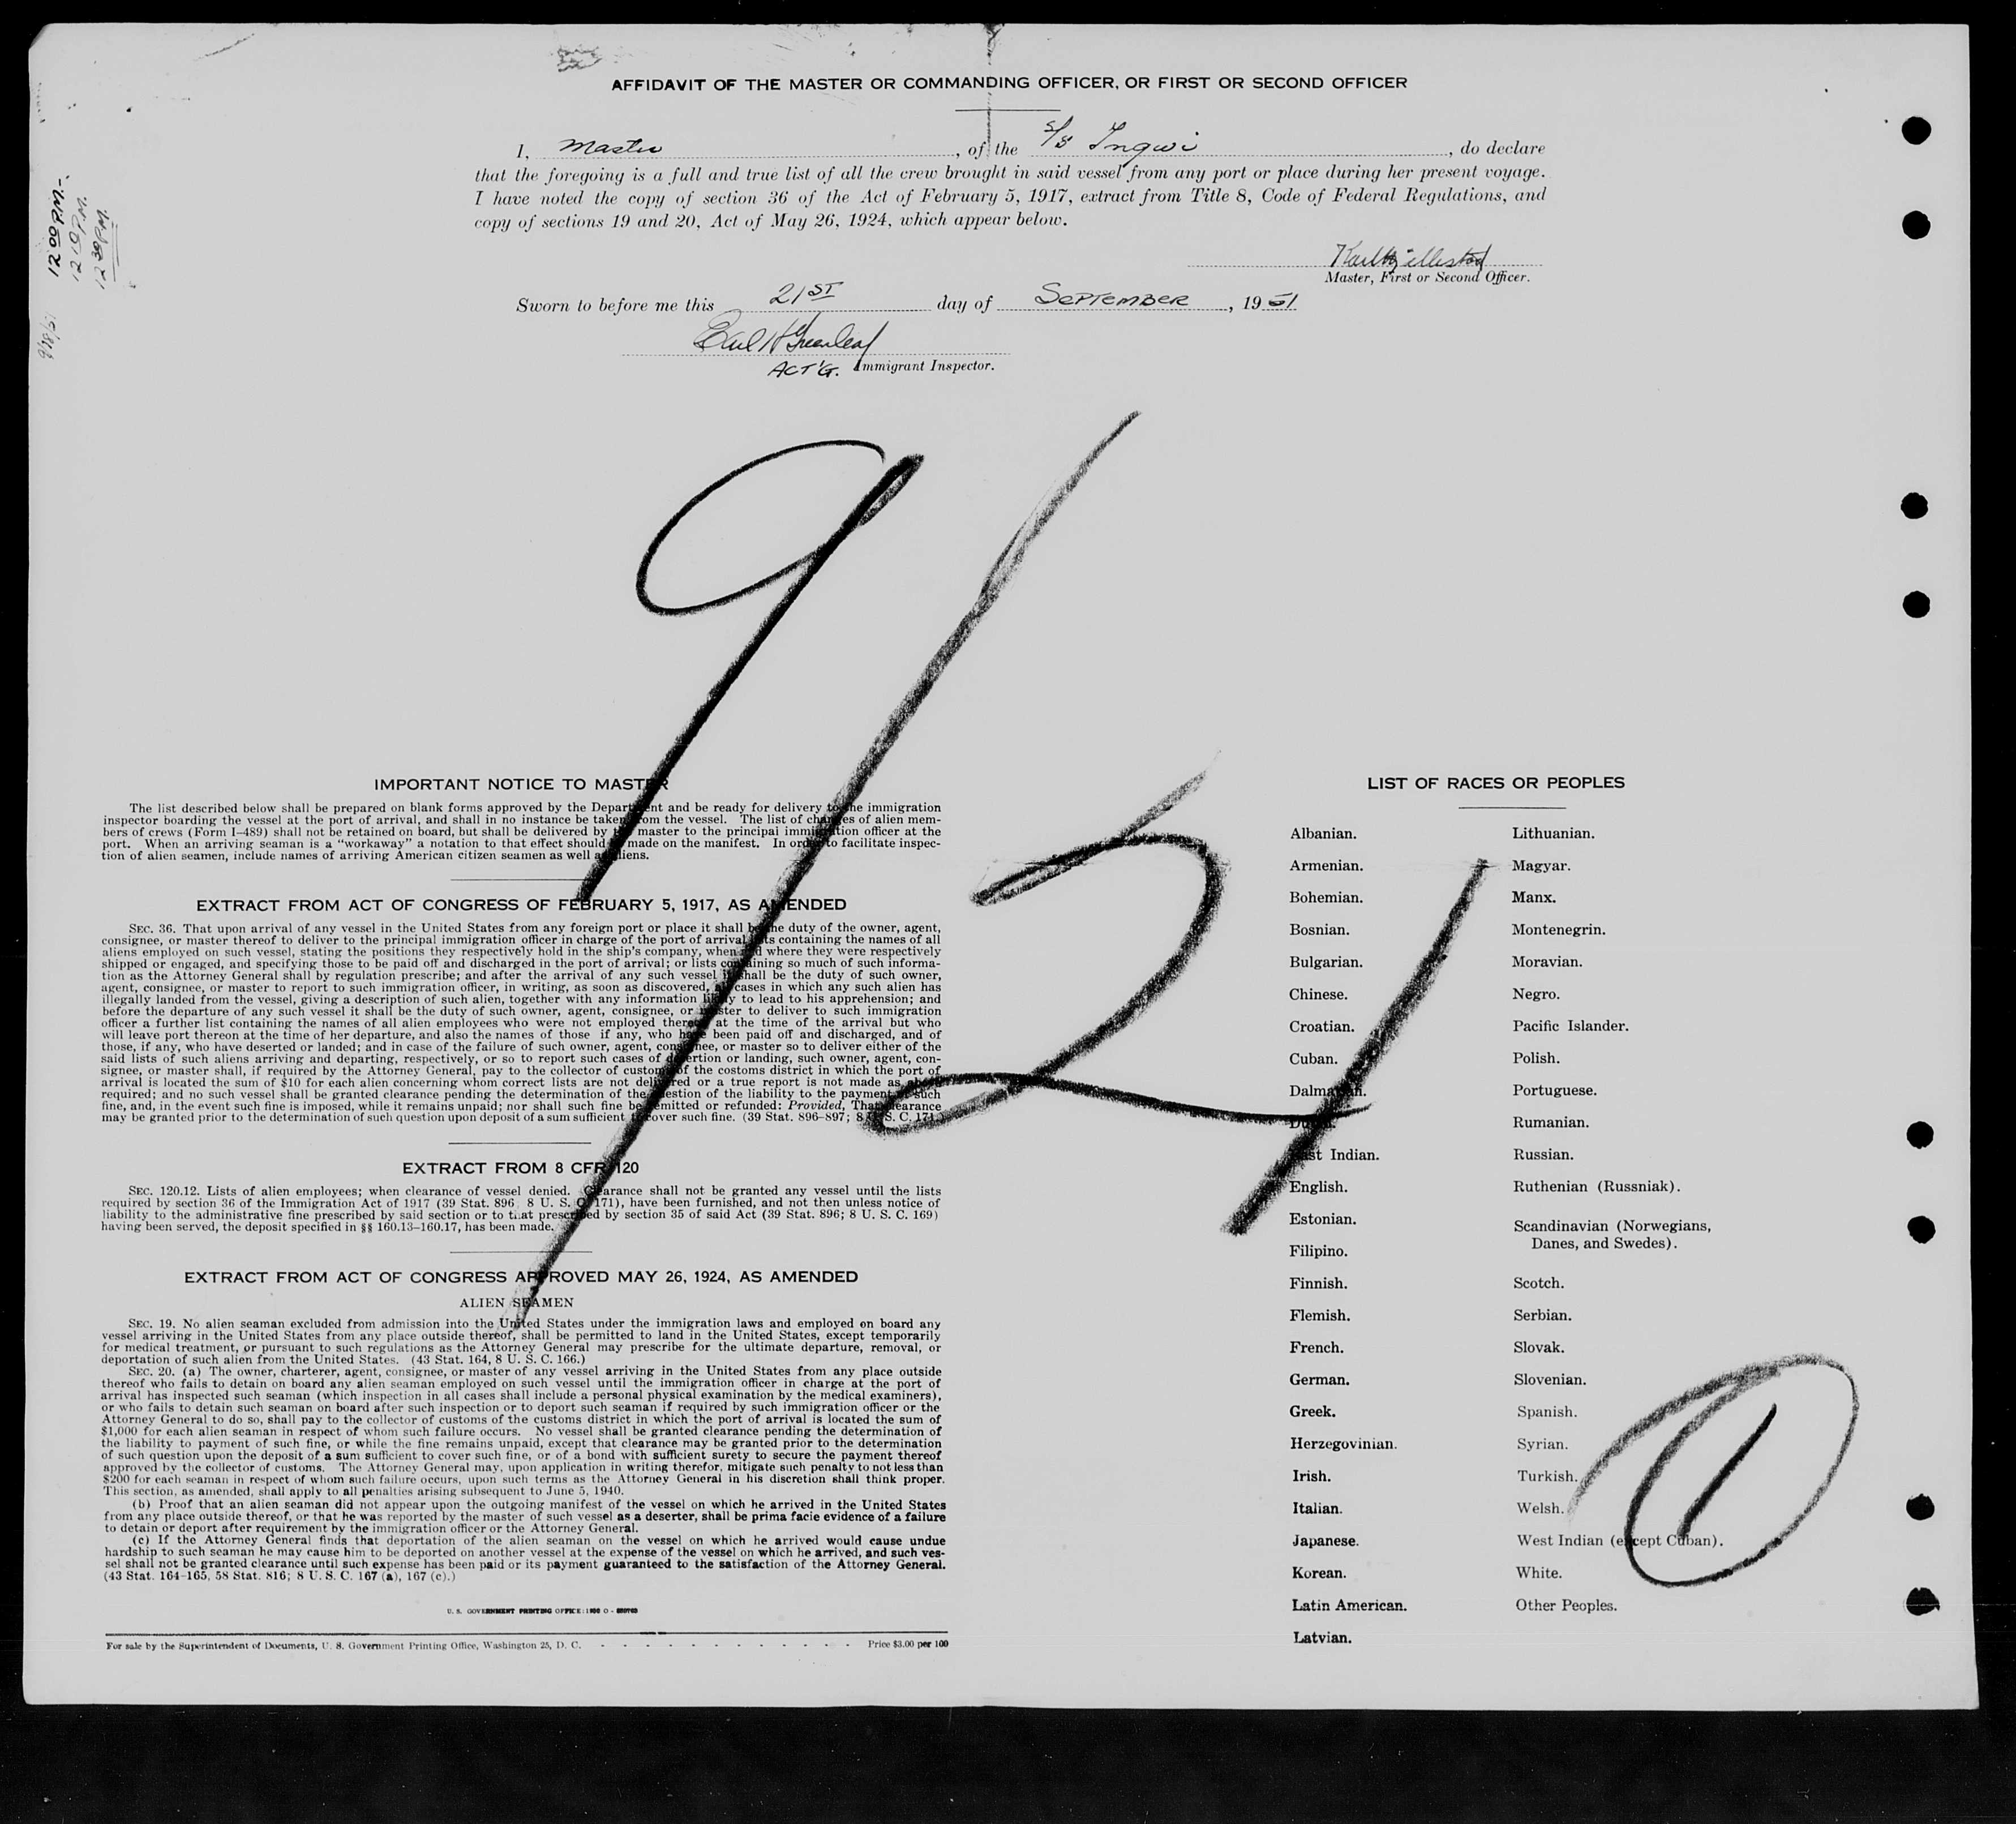 AFFIDAVIT OF THE MASTER OR COMMANDING OFFICER, OR FIRST OR SECOND OFFICER
I, Master, of the S/S Ingwi, do declare
that the foregoing is a full and true list of all the crew brought in said vessel from any port or place during her present voyage.
I have noted the copy of section 36 of the Act of February 5, 1917, extract from Title 8, Code of Federal Regulations, and
copy of sections 19 and 20, Act of May 26, 1924, which appear below.
Master, First or Second Officer.
Sworn to before me this 21ST day of SEPTEMBER, 1951
Earl H Greenleaf
ACT'G. Immigrant Inspector.
12 00 P.M.
12 10 P.M.
12 30 P.M.
9/21
IMPORTANT NOTICE TO MASTER
The list described below shall be prepared on blank forms approved by the Department and be ready for delivery to the immigration
inspector boarding the vessel at the port of arrival, and shall in no instance be taken from the vessel. The list of changes of alien mem-
bers of crews (Form I–489) shall not be retained on board, but shall be delivered by the master to the principal immigration officer at the
port. When an arriving seaman is a “workaway” a notation to that effect should be made on the manifest. In order to facilitate inspec-
tion of alien seamen, include names of arriving American citizen seamen as well as aliens.
EXTRACT FROM ACT OF CONGRESS OF FEBRUARY 5, 1917, AS AMENDED
SEC. 36. That upon arrival of any vessel in the United States from any foreign port or place it shall be the duty of the owner, agent,
consignee, or master thereof to deliver to the principal immigration officer in charge of the port of arrival lists containing the names of all
aliens employed on such vessel, stating the positions they respectively hold in the ship's company, when and where they were respectively
shipped or engaged, and specifying those to be paid off and discharged in the port of arrival; or lists containing so much of such informa-
tion as the Attorney General shall by regulation prescribe; and after the arrival of any such vessel it shall be the duty of such owner,
agent, consignee, or master to report to such immigration officer, in writing, as soon as discovered, all cases in which any such alien has
illegally landed from the vessel, giving a description of such alien, together with any information likely to lead to his apprehension; and
before the departure of any such vessel it shall be the duty of such owner, agent, consignee, or master to deliver to such immigration
officer a further list containing the names of all alien employees who were not employed thereon at the time of the arrival but who
will leave port thereon at the time of her departure, and also the names of those if any, who have been paid off and discharged, and of
those, if any, who have deserted or landed; and in case of the failure of such owner, agent, consignee, or master so to deliver either of the
said lists of such aliens arriving and departing, respectively, or so to report such cases of desertion or landing, such owner, agent, con-
signee, or master shall, if required by the Attorney General, pay to the collector of customs of the costoms district in which the port of
arrival is located the sum of $10 for each alien concerning whom correct lists are not delivered or a true report is not made as above
required; and no such vessel shall be granted clearance pending the determination of the question of the liability to the payment of such
fine, and, in the event such fine is imposed, while it remains unpaid; nor shall such fine be remitted or refunded: Provided, That clearance
may be granted prior to the determination of such question upon deposit of a sum sufficient to cover such fine. (39 Stat. 896–897; 8 U. S. C. 171.)
EXTRACT FROM 8 CFR 120
SEC. 120.12. Lists of alien employees; when clearance of vessel denied. Clearance shall not be granted any vessel until the lists
required by section 36 of the Immigration Act of 1917 (39 Stat. 896 8 U. S. C. 171), have been furnished, and not then unless notice of
liability to the administrative fine prescribed by said section or to that prescribed by section 35 of said Act (39 Stat. 896; 8 U. S. C. 169)
having been served, the deposit specified in §§ 160.13–160.17, has been made.
EXTRACT FROM ACT OF CONGRESS APPROVED MAY 26, 1924, AS AMENDED
ALIEN SEAMEN
SEC. 19. No alien seaman excluded from admission into the United States under the immigration laws and employed on board any
vessel arriving in the United States from any place outside thereof, shall be permitted to land in the United States, except temporarily
for medical treatment, or pursuant to such regulations as the Attorney General may prescribe for the ultimate departure, removal, or
deportation of such alien from the United States. (43 Stat. 164, 8 U. S. C. 166.)
SEC. 20. (a) The owner, charterer, agent, consignee, or master of any vessel arriving in the United States from any place outside
thereof who fails to detain on board any alien seaman employed on such vessel until the immigration officer in charge at the port of
arrival has inspected such seaman (which inspection in all cases shall include a personal physical examination by the medical examiners),
or who fails to detain such seaman on board after such inspection or to deport such seaman if required by such immigration officer or the
Attorney General to do so, shall pay to the collector of customs of the customs district in which the port of arrival is located the sum of
$1,000 for each alien seaman in respect of whom such failure occurs. No vessel shall be granted clearance pending the determination of
the liability to payment of such fine, or while the fine remains unpaid, except that clearance may be granted prior to the determination
of such question upon the deposit of a sum sufficient to cover such fine, or of a bond with sufficient surety to secure the payment thereof
approved by the collector of customs. The Attorney General may, upon application in writing therefor, mitigate such penalty to not less than
$200 for each seaman in respect of whom such failure occurs, upon such terms as the Attorney General in his discretion shall think proper.
This section, as amended, shall apply to all penalties arising subsequent to June 5, 1940.
(b) Proof that an alien seaman did not appear upon the outgoing manifest of the vessel on which he arrived in the United States
from any place outside thereof, or that he was reported by the master of such vessel as a deserter, shall be prima facie evidence of a failure
to detain or deport after requirement by the immigration officer or the Attorney General.
(c) If the Attorney General finds that deportation of the alien seaman on the vessel on which he arrived would cause undue
hardship to such seaman he may cause him to be deported on another vessel at the expense of the vessel on which he arrived, and such ves-
sel shall not be granted clearance until such expense has been paid or its payment guaranteed to the satisfaction of the Attorney General.
(43 Stat. 164–165, 58 Stat. 816; 8 U. S. C. 167 (a), 167 (c).)
U. S. GOVERNMENT PRINTING OFFICE
For sale by the Superintendent of Documents, U. S. Government Printing Office, Washington 25, D. C. - - - - - - - - - - - - Price $3.00 per 100
LIST OF RACES OR PEOPLES
Albanian.
Armenian.
Bohemian.
Bosnian.
Bulgarian.
Chinese.
Croatian.
Cuban.
Dalmatian.
Dutch.
East Indian.
English.
Estonian.
Filipino.
Finnish.
Flemish.
French.
German.
Greek.
Herzegovinian.
Irish.
Italian.
Japanese.
Korean.
Latin American.
Latvian.
Lithuanian.
Magyar.
Manx.
Montenegrin.
Moravian.
Negro.
Pacific Islander.
Polish.
Portuguese.
Rumanian.
Russian.
Ruthenian (Russniak).
Scandinavian (Norwegians,
Danes, and Swedes).
Scotch.
Serbian.
Slovak.
Slovenian.
Spanish.
Syrian.
Turkish.
Welsh.
West Indian (except Cuban).
White.
Other Peoples.
1